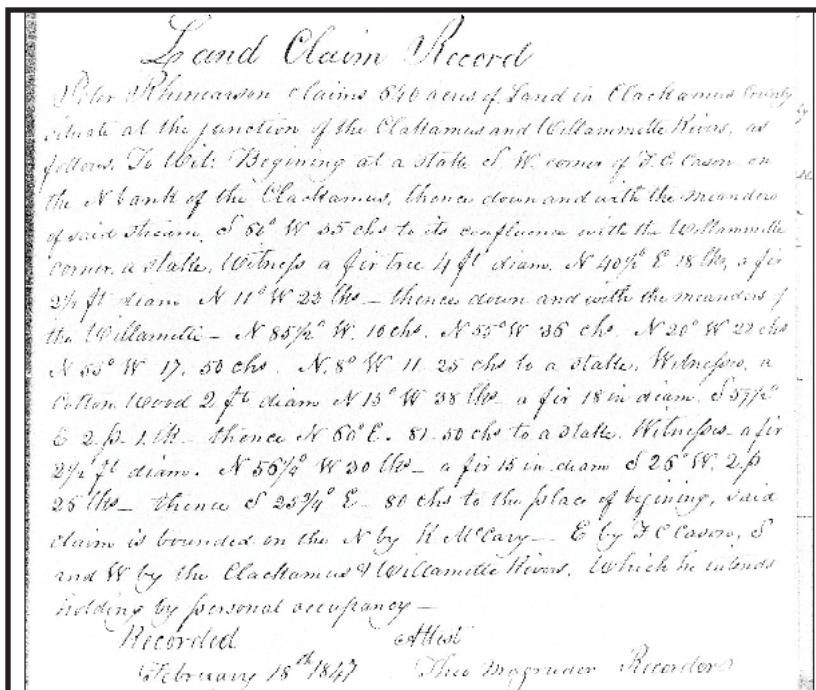 Land Claim Record
Peter Rhinearson claims 640 acres of Land in Clackamus County
situate at the junction of the Clattamus and Willammette Rivers, as
follows. To Wit: Begining at a stake S W. corner of F. C. Cason on
the N bank of the Clackamus, thence down and with the meanders
of said stream, S 50° W 55 chs to its confluence with the Willammette
corner, a stake, Witness a fir tree 4 ft diam. N 40½ E 18 lks, a fir
2½ ft diam N 11° W 22 lks — thence down and with the meanders of
the Willamette — N 85½° W. 10 chs. N 55° W 36 chs. N 20° W 22 chs
N 55° W 17. 50 chs. N. 8° W 11 25 chs to a stake. Witnesses, a
Cotton Wood 2 ft diam N 15° W 38 lks a fir 18 in diam. S 57½°
E 2 p. 1 lk — thence N 60° E. 81. 50 chs to a stake. Witnesses a fir
2½ ft diam. N 56½° W 30 lks — a fir 15 in diam S 26° W. 2 p
25 lks — thence S 25¾° E — 80 chs to the place of begining, said
claim is bounded on the N by R McCary — E by F C Cason, S
and W by the Clackamus & Willamette Rivers. Which he intends
holding by personal occupancy —
Recorded Attest
February 15th 1847 Theo Magruder Recorder